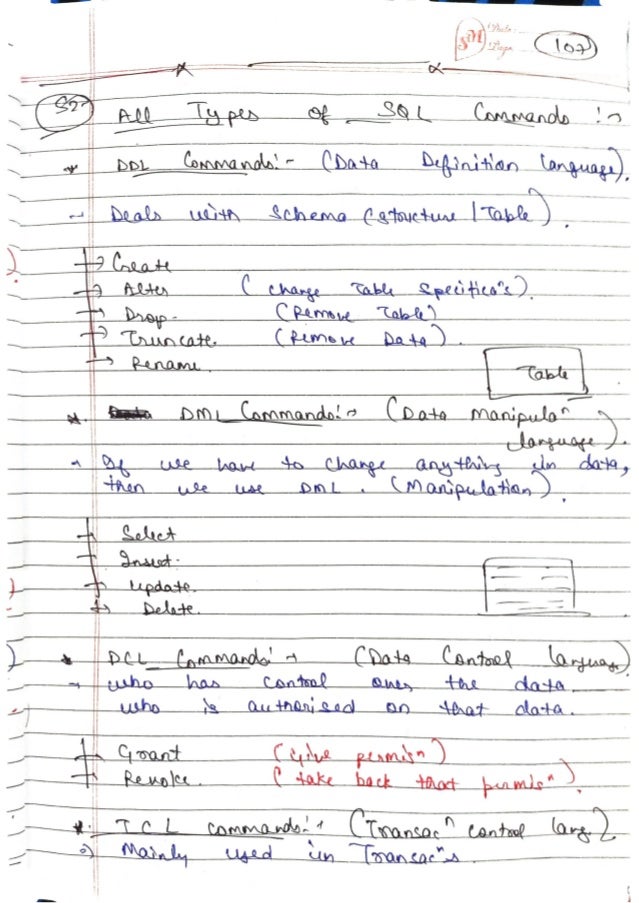 SM Date
Page
107
52> All Types of SQL Commands :→
* DDL Commands:- (Data Definition Language).
- Deals with Schema (structure | Table).
→ Create
→ Alter (change Table specificaⁿs).
→ Drop. (Remove Table)
→ Truncate. (Remove Data).
→ Rename.
Table
*. DML Commands:→ (Data Manipulaⁿ
language).
→ If we have to change anything in data,
then we use DML. (Manipulation).
Select
Insert.
Update.
→ Delete.
* DCL Commands:→ (Data Control Language)
→ who has control over the data.
who is authorised on that data.
Grant (Give permisⁿ)
Revoke. (take back that permisⁿ).
*. TCL commands:→ (Transacⁿ control lang.)
Mainly used in Transacⁿs.